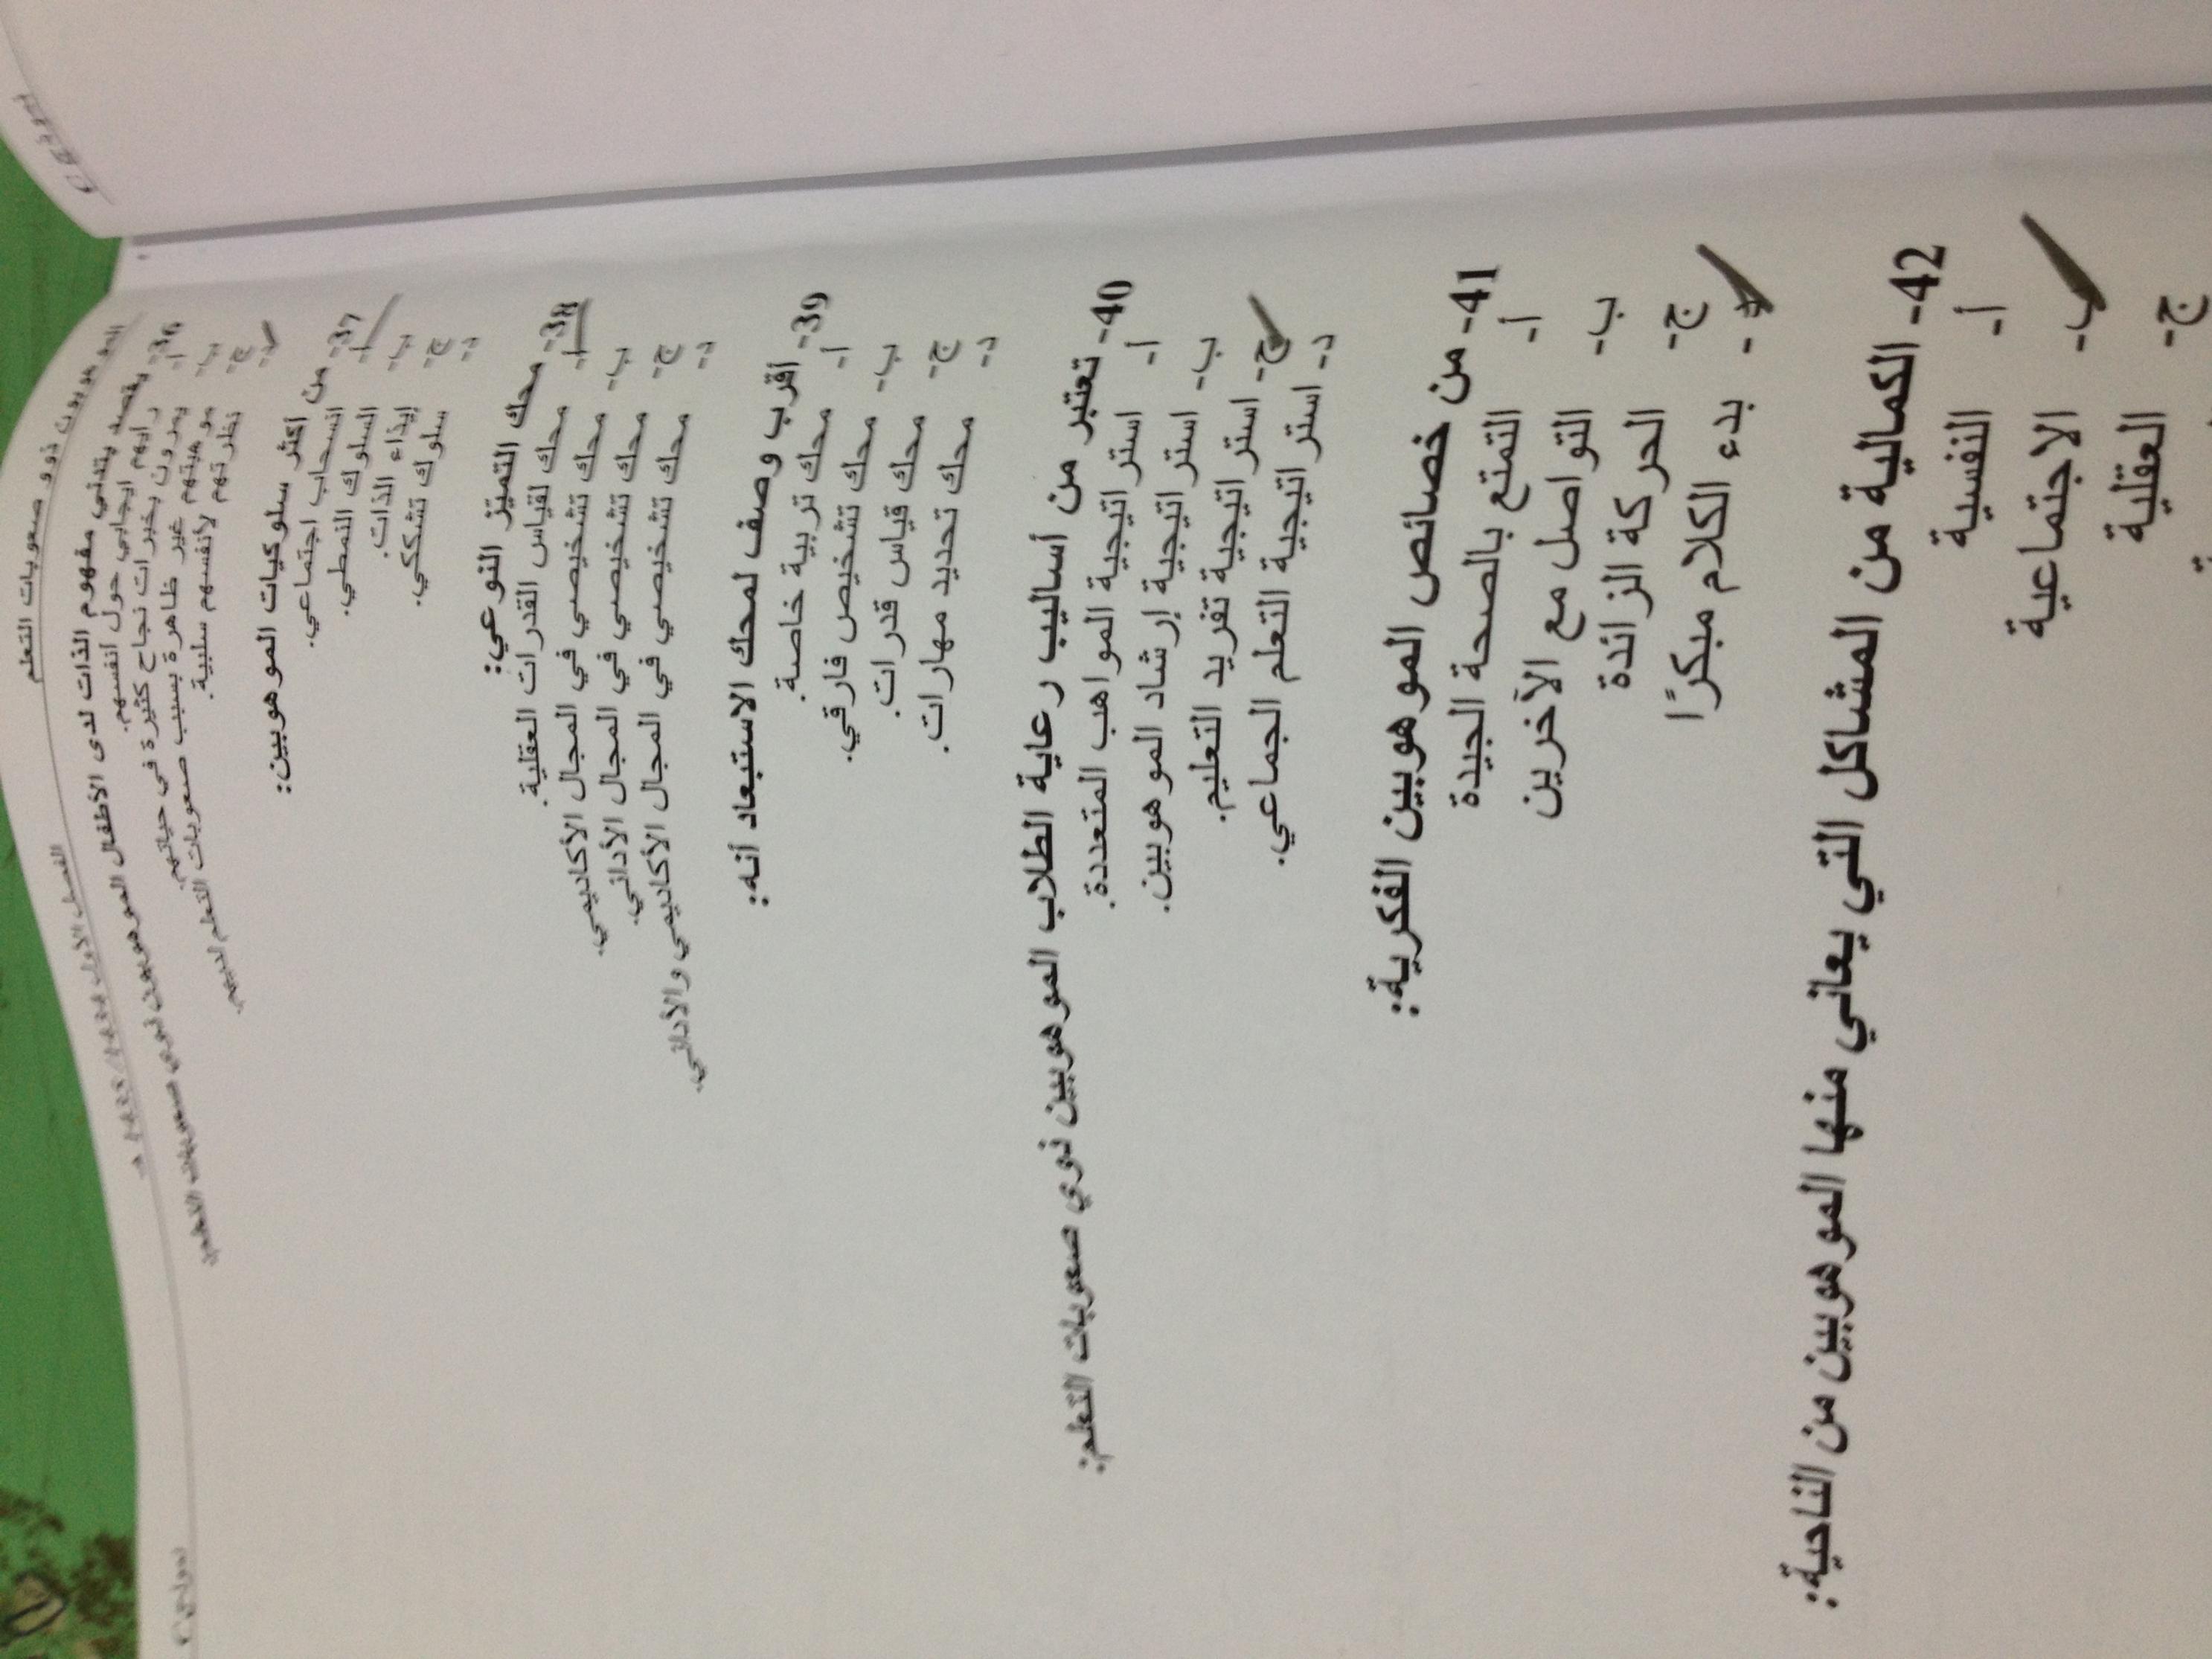 الموهوبون ذوو صعوبات التعلم
36- يقصد بتدني مفهوم الذات لدى الأطفال الموهوبين ذوي صعوبات التعلم
أ- رأيهم ايجابي حول أنفسهم.
ب- يمرون بخبرات نجاح كثيرة في حياتهم.
ج- موهبتهم غير ظاهرة بسبب صعوبات التعلم لديهم.
د- نظرتهم لأنفسهم سلبية.
37- من أكثر سلوكيات الموهوبين:
أ- انسحاب اجتماعي.
ب- السلوك النمطي.
ج- إيذاء الذات.
د- سلوك تشككي.
38- محك التميز النوعي:
أ- محك لقياس القدرات العقلية.
ب- محك تشخيصي في المجال الأكاديمي.
ج- محك تشخيصي في المجال الأدائي.
د- محك تشخيصي في المجال الأكاديمي والأدائي.
39- أقرب وصف لمحك الاستبعاد أنه:
أ- محك تربية خاصة.
ب- محك تشخيص فارقي.
ج- محك قياس قدرات.
د- محك تحديد مهارات.
40- تعتبر من أساليب رعاية الطلاب الموهوبين ذوي صعوبات التعلم:
أ- استراتيجية المواهب المتعددة.
ب- استراتيجية إرشاد الموهوبين.
ج- استراتيجية تفريد التعليم.
د- استراتيجية التعلم الجماعي.
41- من خصائص الموهوبين الفكرية:
أ- التمتع بالصحة الجيدة
ب- التواصل مع الآخرين
ج- الحركة الزائدة
د- بدء الكلام مبكرًا
42- الكمالية من المشاكل التي يعاني منها الموهوبين من الناحية:
أ- النفسية
ب- الاجتماعية
ج- العقلية